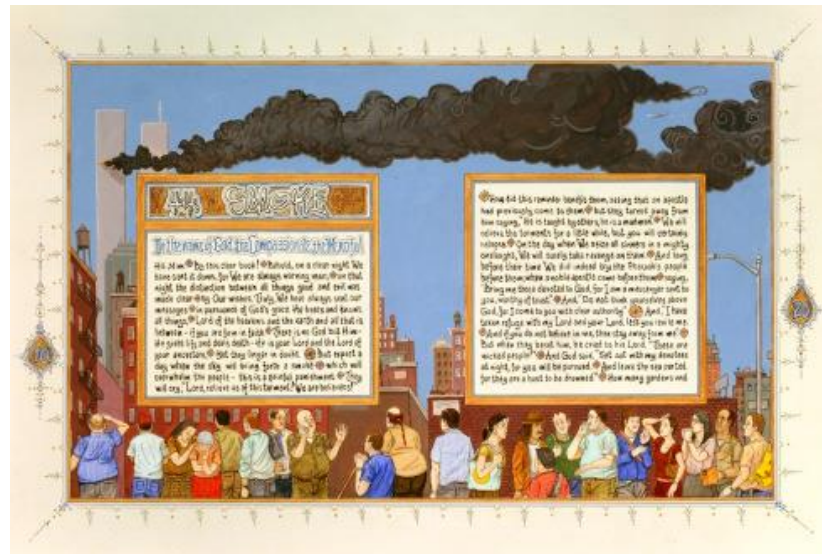 44 SMOKE
In the name of God, the Compassionate, the Merciful
Ha. Mim. By this clear book! Behold, on a clear night We
have sent it down, for We are always warning man, on that
night the distinction between all things good and evil was
made clear by Our wishes. Truly, We have always sent our
messages in pursuance of God's grace. He hears and knows
all things. Lord of the heavens and the earth and all that is
between - if you are firm in faith. There is no God but Him.
He gives life and deals death - He is your Lord and the Lord of
your ancestors. Yet they linger in doubt. But expect a
day when the sky will bring forth a smoke which will
overwhelm the people - this is a painful punishment. They
will cry, "Lord, relieve us of this torment. We are believers!"
How did this reminder benefit them, seeing that an apostle
had previously come to them. But they turned away from
him saying, "He is taught by others, he is a madman." We will
relieve the torments for a little while, but you will certainly
relapse. On the day when We seize all sinners in a mighty
onslaught, We will surely take revenge on them. And long
before their time We did indeed try the Pharaoh's people
before them, when a noble apostle came before them saying,
"Bring me those devoted to God, for I am a messenger sent to
you, worthy of trust." And, "Do not think yourselves above
God, for I come to you with clear authority." And, "I have
taken refuge with my Lord and your Lord, lest you stone me.
And if you do not believe in me, then stay away from me."
But while they beset him, he cried to his Lord, "These are
wicked people." And God said, "Set out with my devotees
at night, for you will be pursued. And leave the sea parted,
for they are a host to be drowned." How many gardens and